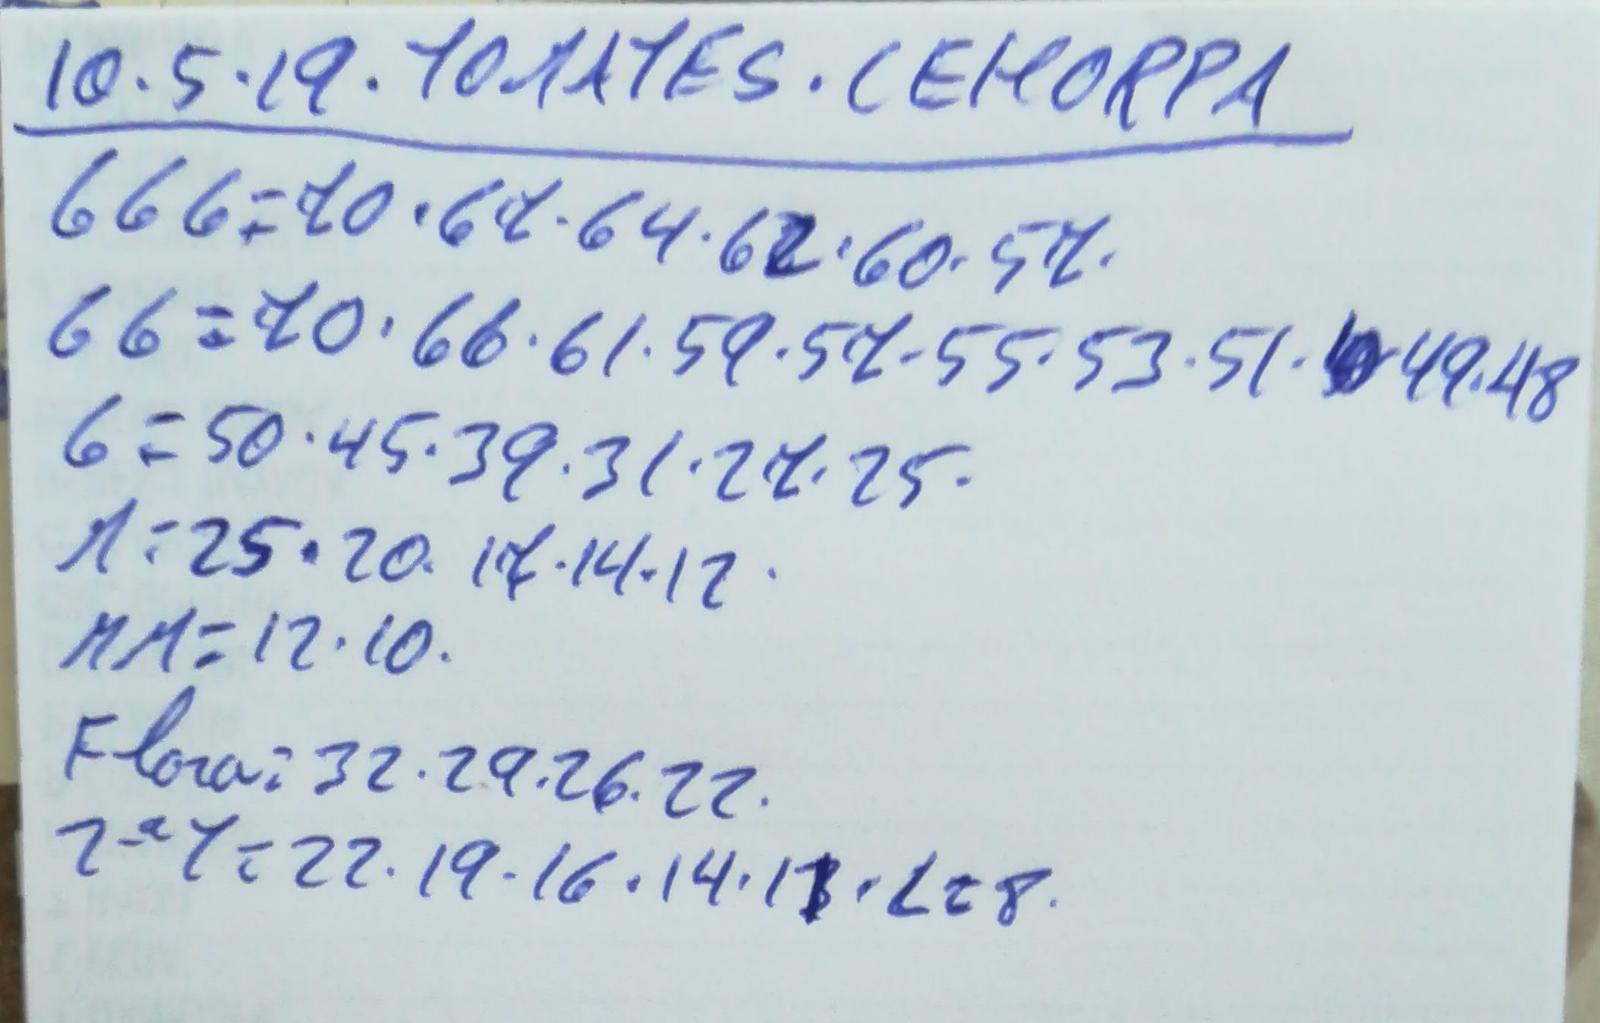 10.5.19. TOMATES. CEHORPA
666=70.67.64.62.60.57.
66=70.66.61.59.57.55.53.51.49.48
6=50.45.39.31.27.25.
M=25.20.17.14.12.
MM=12.10.
Flora=32.29.26.22.
2-ª7=22.19.16.14.13.L=8.